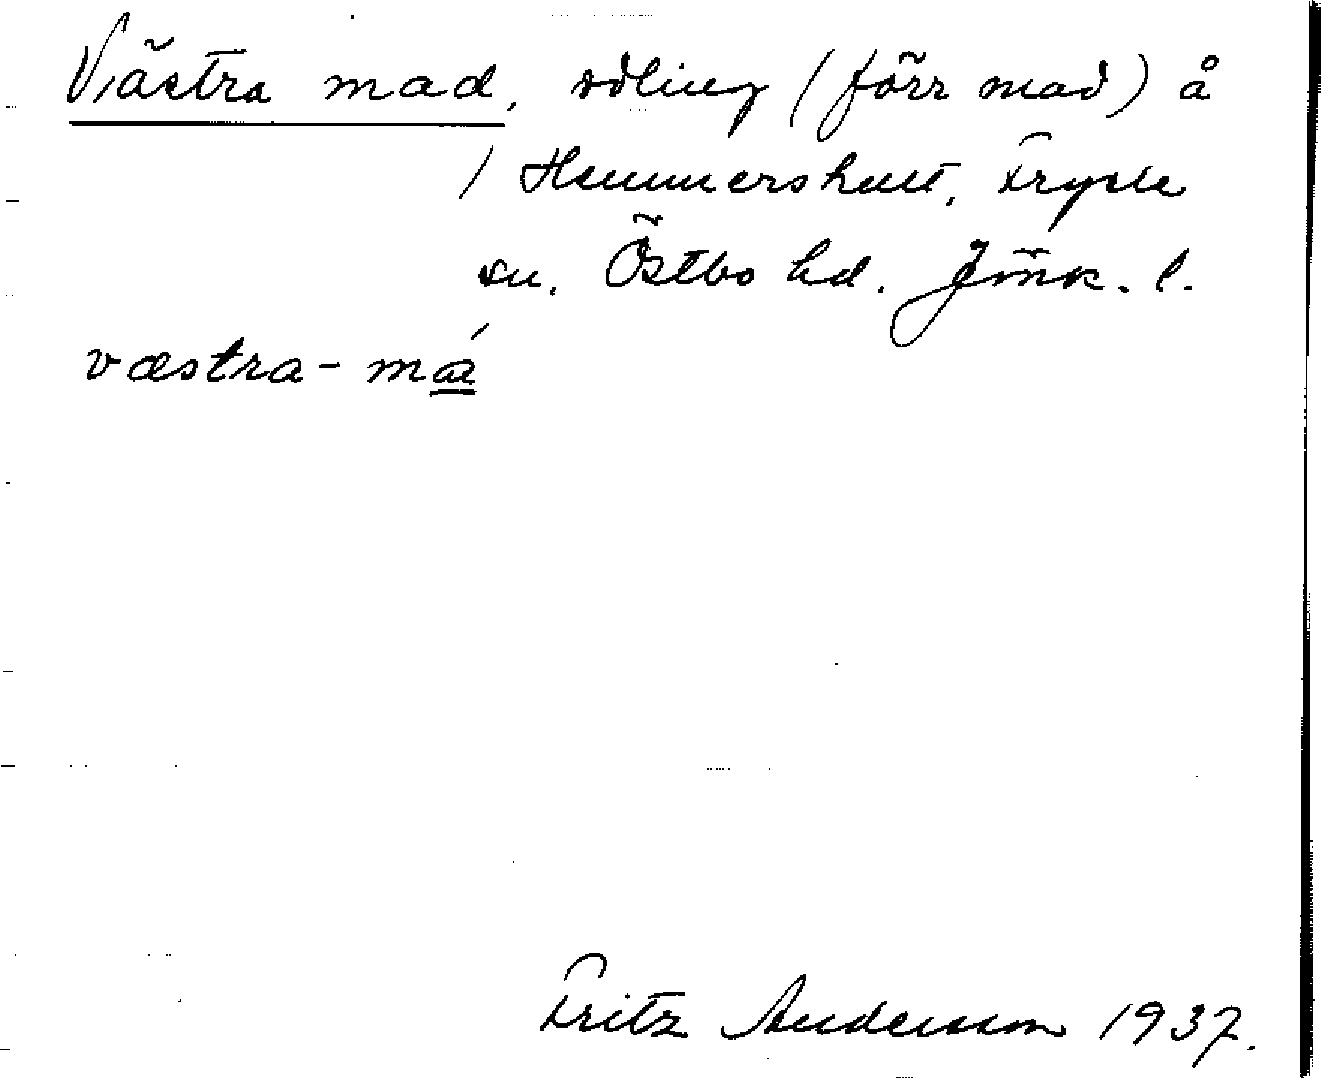 Västra mad, odling (förr mad) å
/ Hemmershult, Fryele
sn. Östbo hd. Jönk. l.
væstra-má̳
Fritz Andersson 1937.